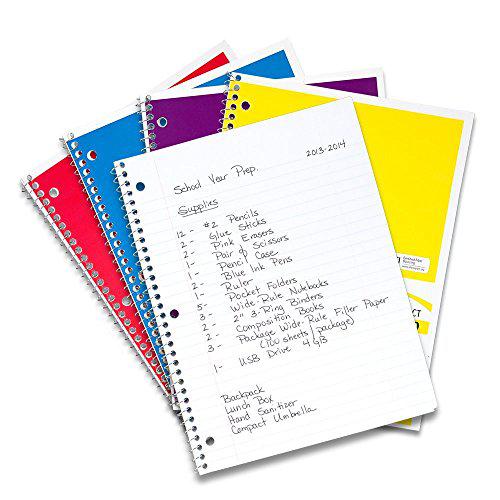 2013-2014
School Year Prep.
Supplies
12- #2 Pencils
2- Glue Sticks
2- Pink Erasers
2- Pair of Scissors
1- Pencil Case
2- Blue Ink Pens
1- Ruler
5- Pocket Folders
3- Wide-Rule Notebooks
2- 2" 3-Ring Binders
2- Composition Books
3- Package Wide-Rule Filler Paper
(100 sheets/package)
1- USB Drive 4 GB
Backpack
Lunch Box
Hand Sanitizer
Compact Umbrella